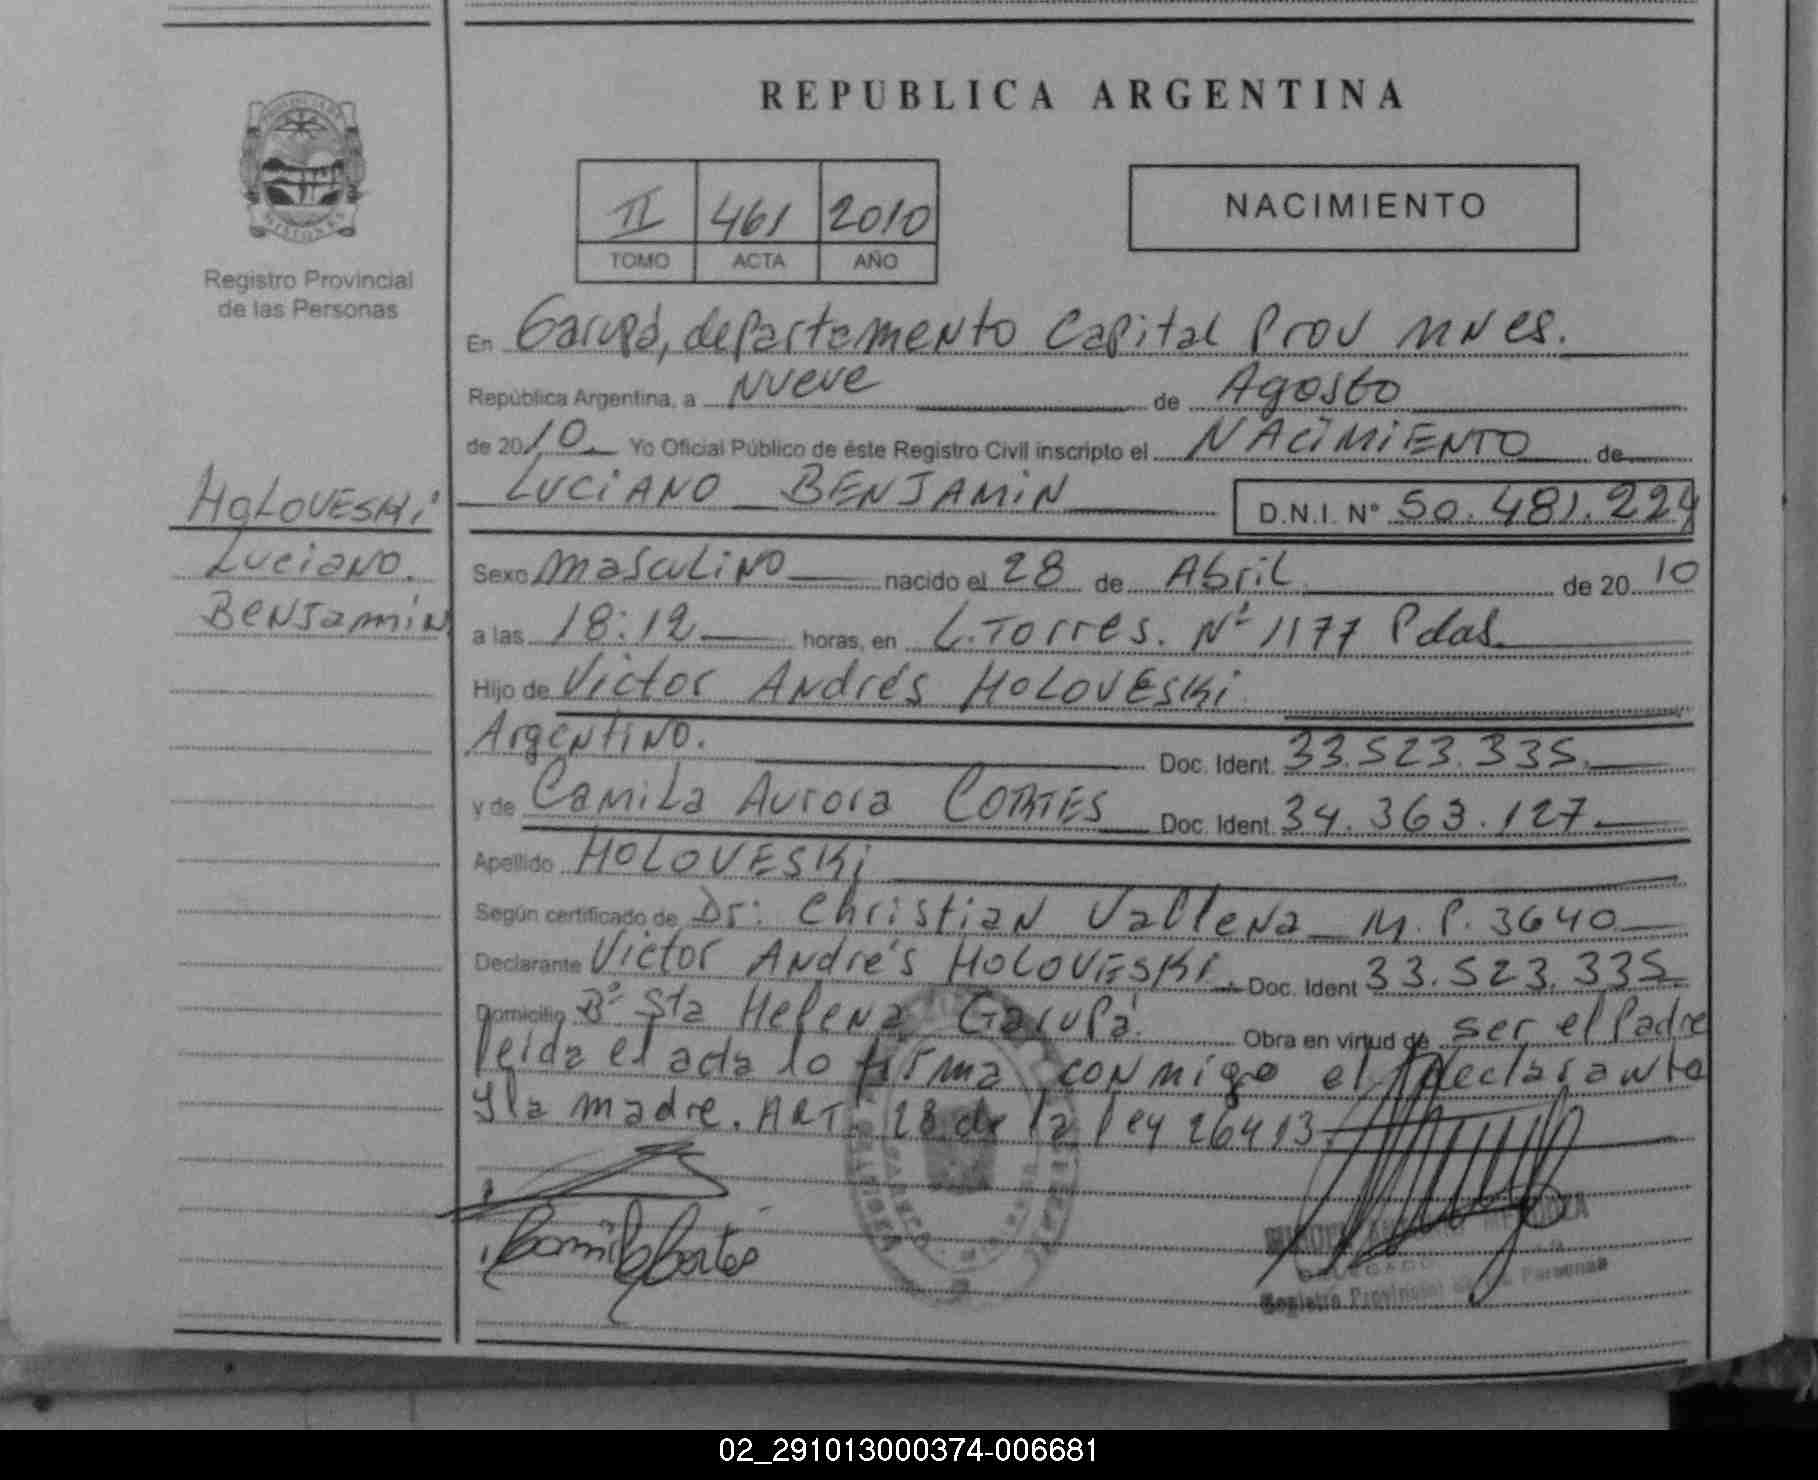 REPUBLICA ARGENTINA
NACIMIENTO
II 461 2010
TOMO ACTA AÑO
Registro Provincial
de las Personas
HOLOVESKI
Luciano.
Benjamín
En Garupá, departamento Capital Prov MNES.
República Argentina, a Nueve de Agosto
de 2010 Yo Oficial Público de éste Registro Civil inscripto el NACIMIENTO de
LUCIANO BENJAMIN D.N.I. N° 50.481.224
Sexo masculino nacido el 28 de Abril de 2010
a las 18:12 horas, en L. Torres. Nº 1177 Pdas.
Hijo de Victor Andrés HOLOVESKI
Argentino. Doc. Ident. 33.523.335.
y de Camila Aurora CORTES Doc. Ident. 34.363.127.
Apellido HOLOVESKI
Según certificado de Dr: Christian Vallena M.P. 3640
Declarante Victor Andrés HOLOVESKI. Doc. Ident 33.523.335
Domicilio Bº Sta Helena Garupá. Obra en virtud de ser el Padre
leida el acta lo firma conmigo el declarante
y la madre. ART. 28 de la ley 26413
Camila Cortés
MENDOZA
DELEGADO
Registro Provincial de las Personas
02_291013000374-006681